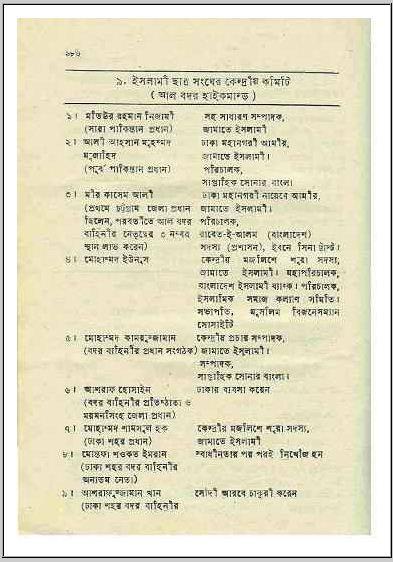 ১৮৬
১. ইসলামী ছাত্র সংঘের কেন্দ্রীয় কমিটি
( আল বদর হাইকমান্ড )
১। মতিউর রহমান নিজামী সহ সাধারণ সম্পাদক,
(সারা পাকিস্তান প্রধান) জামাতে ইসলামী
২। আলী আহসান মুহম্মদ ঢাকা মহানগরী আমীর,
মুজাহিদ জামাতে ইসলামী।
(পূর্ব পাকিস্তান প্রধান) পরিচালক,
সাপ্তাহিক সোনার বাংলা
৩। মীর কাসেম আলী ঢাকা মহানগরী নায়েবে আমীর,
(প্রথমে চট্টগ্রাম জেলা প্রধান জামাতে ইসলামী।
ছিলেন, পরবর্তীতে আল বদর পরিচালক,
বাহিনীর নেতৃত্বের ৩ নম্বর রাবেত-ই-আলম (বাংলাদেশ)
স্থান লাভ করেন) সদস্য (প্রশাসন), ইবনে সিনা ট্রাস্ট।
৪। মোহাম্মদ ইউনুস কেন্দ্রীয় মজলিশে শুরা সদস্য,
জামাতে ইসলামী। মহাপরিচালক,
বাংলাদেশ ইসলামী ব্যাংক। পরিচালক,
ইসলামিক সমাজ কল্যাণ সমিতি।
সভাপতি, মুসলিম বিজনেসম্যান
সোসাইটি
৫। মোহাম্মদ কামরুজ্জামান কেন্দ্রীয় প্রচার সম্পাদক,
(বদর বাহিনীর প্রধান সংগঠক) জামাতে ইসলামী।
সম্পাদক,
সাপ্তাহিক সোনার বাংলা।
৬। আশরাফ হোসাইন ঢাকায় ব্যবসা করেন
(বদর বাহিনীর প্রতিষ্ঠাতা ও
ময়মনসিংহ জেলা প্রধান)
৭। মোহাম্মদ শামসুল হক কেন্দ্রীয় মজলিশে শুরা সদস্য,
(ঢাকা শহর প্রধান) জামাতে ইসলামী
৮। মোস্তফা শওকত ইমরান স্বাধীনতার পর পরই নিখোঁজ হন
(ঢাকা শহর বদর বাহিনীর
অন্যতম নেতা)
৯। আশরাফুজ্জামান খান সৌদী আরবে চাকুরী করেন
(ঢাকা শহর বদর বাহিনীর